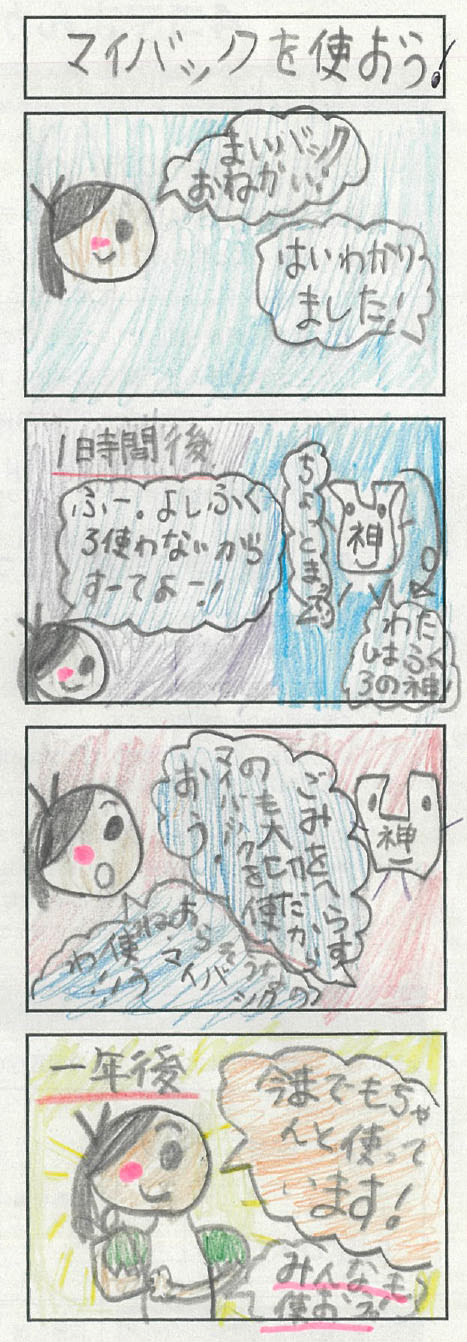 マイバックを使おう!
まいバック
おねがい!
はいわかり
ました!
1時間後
ちょっとまった
神
ふー。よしふく
ろ使わないから
すーてよー!
わた
しはふく
ろの神
神
ごみをへらす
のも大切だから
マイバックを使
おう。
一年後
今までもちゃ
んと使って
います!
みんなも
使おう!